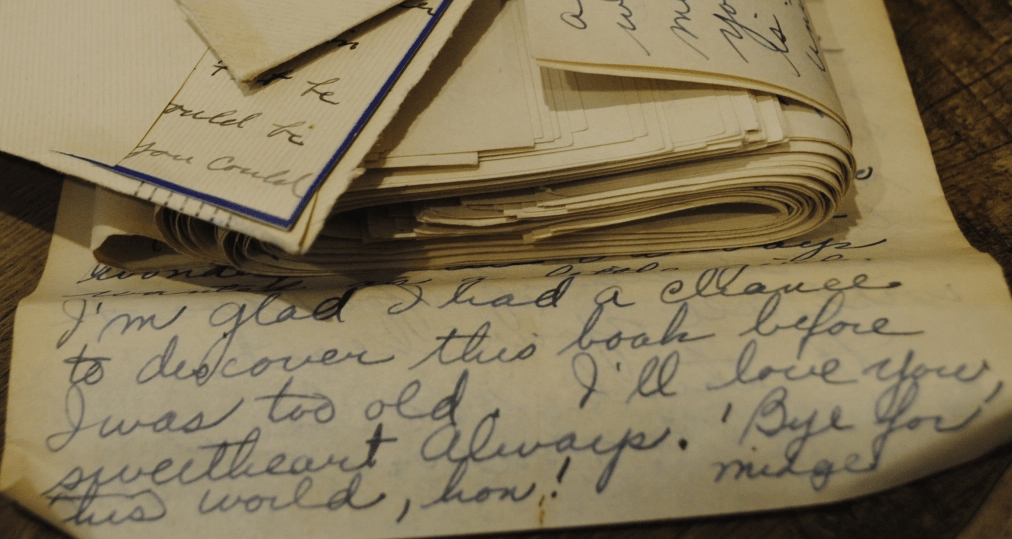 be
ould be
you could
a
I'm glad I had a chance
to discover this book before
I was too old. I'll love you,
sweetheart always. 'Bye for
this world, hon! midge